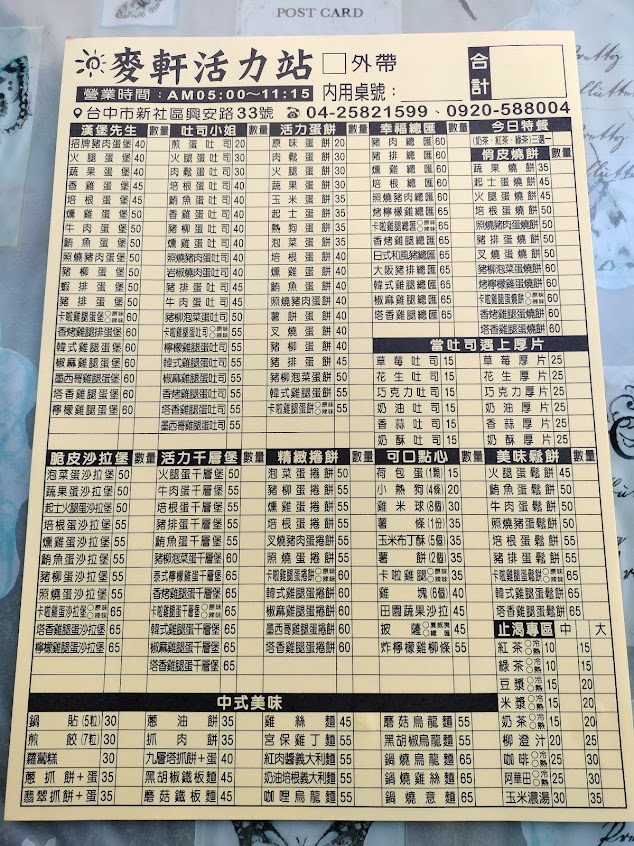 POST CARD
麥軒活力站 □外帶 合計
營業時間：AM05:00～11:15 內用桌號：
台中市新社區興安路33號 ☎04-25821599、0920-588004
漢堡先生 數量
招牌豬肉蛋堡 40
火腿蛋堡 40
蔬果蛋堡 40
香雞蛋堡 45
培根蛋堡 45
燻雞蛋堡 50
牛肉蛋堡 50
鮪魚蛋堡 50
照燒豬肉蛋堡 50
豬柳蛋堡 50
蝦排蛋堡 50
豬排蛋堡 50
卡啦雞腿蛋堡○原味○辣味 60
香烤雞腿排蛋堡 60
韓式雞腿蛋堡 60
椒麻雞腿蛋堡 60
墨西哥雞腿蛋堡 60
塔香雞腿蛋堡 60
檸檬雞腿蛋堡 60
吐司小姐 數量
煎蛋吐司 20
肉鬆蛋吐司 30
火腿蛋吐司 30
培根蛋吐司 40
鮪魚蛋吐司 40
豬排蛋吐司 40
豬肉蛋吐司 40
燻雞蛋吐司 40
照燒豬肉蛋吐司 40
岩椒燒肉蛋吐司 40
豬柳蛋吐司 45
牛肉蛋吐司 45
豬柳泡菜蛋吐司 50
卡啦雞腿蛋吐司○原味○辣味 55
檸檬雞腿蛋吐司 55
韓式雞腿蛋吐司 55
椒麻雞腿蛋吐司 55
香烤雞腿蛋吐司 55
塔香雞腿蛋吐司 55
墨西哥雞腿蛋吐司 55
活力蛋餅 數量
原味蛋餅 20
肉鬆蛋餅 30
火腿蛋餅 30
蔬果蛋餅 30
玉米蛋餅 35
起士蛋餅 35
熱狗蛋餅 35
泡菜蛋餅 35
培根蛋餅 40
燻雞蛋餅 40
鮪魚蛋餅 40
照燒豬肉蛋餅 40
薯餅蛋餅 40
叉燒蛋餅 40
豬柳蛋餅 40
豬排蛋餅 45
豬柳泡菜蛋餅 50
韓式雞腿蛋餅 55
卡啦雞腿蛋餅○原味○辣味 55
幸福總匯 數量
豬肉總匯 60
豬排總匯 60
燻雞總匯 60
培根總匯 60
照燒豬肉總匯 60
烤檸檬雞總匯 65
卡啦雞腿總匯○原味○辣味 65
香烤雞腿總匯 65
日式和風豬總匯 65
大阪豬排總匯 65
韓式雞腿總匯 65
椒麻雞腿總匯 65
塔香雞腿總匯 65
今日特餐
(奶茶、紅茶、綠茶)三選一
俏皮燒餅 數量
蔬果燒餅 35
起士蛋燒餅 45
火腿蛋燒餅 45
培根蛋燒餅 50
照燒豬肉蛋燒餅 50
豬排蛋燒餅 50
叉燒蛋燒餅 50
豬柳泡菜蛋燒餅 60
烤檸檬雞蛋燒餅 60
卡啦雞腿蛋燒餅○原味○辣味 60
香烤雞腿蛋燒餅 60
塔香雞腿蛋燒餅 60
當吐司遇上厚片
草莓吐司 15 草莓厚片 25
花生吐司 15 花生厚片 25
巧克力吐司 15 巧克力厚片 25
奶油吐司 15 奶油厚片 25
香蒜吐司 15 香蒜厚片 25
奶酥吐司 15 奶酥厚片 25
脆皮沙拉堡 數量
泡菜蛋沙拉堡 50
蔬果蛋沙拉堡 50
起士火腿蛋沙拉堡 50
培根蛋沙拉堡 55
燻雞蛋沙拉堡 55
鮪魚蛋沙拉堡 55
豬柳蛋沙拉堡 55
照燒蛋沙拉堡 55
卡啦雞蛋沙拉堡○原味○辣味 65
塔香雞腿蛋沙拉堡 65
檸檬雞腿蛋沙拉堡 65
活力千層堡 數量
火腿蛋千層堡 50
牛肉蛋千層堡 55
培根蛋千層堡 55
豬排蛋千層堡 55
鮪魚蛋千層堡 55
豬柳泡菜蛋千層堡 60
泰式檸檬雞蛋千層堡 65
香烤雞腿蛋千層堡 65
卡啦雞腿蛋千層堡○原味○辣味 65
韓式雞腿蛋千層堡 65
椒麻雞腿蛋千層堡 65
塔香雞腿蛋千層堡 65
精緻捲餅 數量
泡菜蛋捲餅 50
豬柳蛋捲餅 55
燻雞蛋捲餅 55
培根蛋捲餅 55
叉燒豬肉蛋捲餅 55
照燒蛋捲餅 60
卡啦雞腿蛋捲餅○原味○辣味 60
韓式雞腿蛋捲餅 60
椒麻雞腿蛋捲餅 60
墨西哥雞腿蛋捲餅 60
塔香雞腿蛋捲餅 60
可口點心 數量
荷包蛋(1顆) 15
小熱狗(4條) 20
雞米球(8個) 30
薯條(1份) 35
玉米布丁酥(5個) 35
薯餅(2個) 35
卡啦雞腿○原味○辣味 35
雞塊(6個) 40
田園蔬果沙拉 45
披薩○夏威夷○總匯 45
炸檸檬雞柳條 55
美味鬆餅 數量
火腿蛋鬆餅 45
鮪魚蛋鬆餅 50
牛肉蛋鬆餅 50
照燒豬蛋鬆餅 50
培根蛋鬆餅 50
豬排蛋鬆餅 55
卡啦雞腿蛋鬆餅○原味○辣味 65
韓式雞腿蛋鬆餅 65
塔香雞腿蛋鬆餅 65
止渴專區 中 大
紅茶○冷○熱 10 15
綠茶○冷○熱 10 15
豆漿○冷○熱 15 20
米漿○冷○熱 15 20
奶茶○冷○熱 15 20
柳澄汁 20 25
咖啡○冷○熱 25 30
阿華田○冷○熱 25 30
玉米濃湯 30 35
中式美味
鍋貼(5粒) 30 蔥油餅 35 雞絲麵 45 磨菇烏龍麵 55
煎餃(7粒) 30 抓肉餅 35 宮保雞丁麵 55 黑胡椒烏龍麵 55
蘿蔔糕 30 九層塔抓餅+蛋 40 紅肉醬義大利麵 55 鍋燒烏龍麵 65
蔥抓餅+蛋 35 黑胡椒鐵板麵 45 奶油培根義大利麵 55 鍋燒雞絲麵 65
翡翠抓餅+蛋 35 磨菇鐵板麵 45 咖哩烏龍麵 55 鍋燒意麵 65